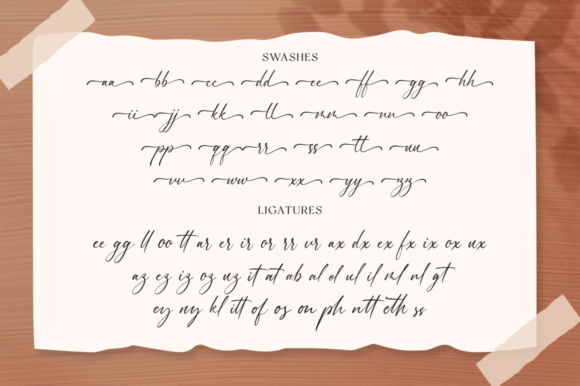 SWASHES
aa bb cc dd ee ff gg hh
ii jj kk ll mm nn oo
pp qq rr ss tt uu
vv ww xx yy zz
LIGATURES
ee gg ll oo tt ar er ir or rr ur ax dx ex fx ix ox ux
az ez iz oz uz it at ab al el ul il rl nl gt
ey ny kl itt of os on ph ntt eth ss